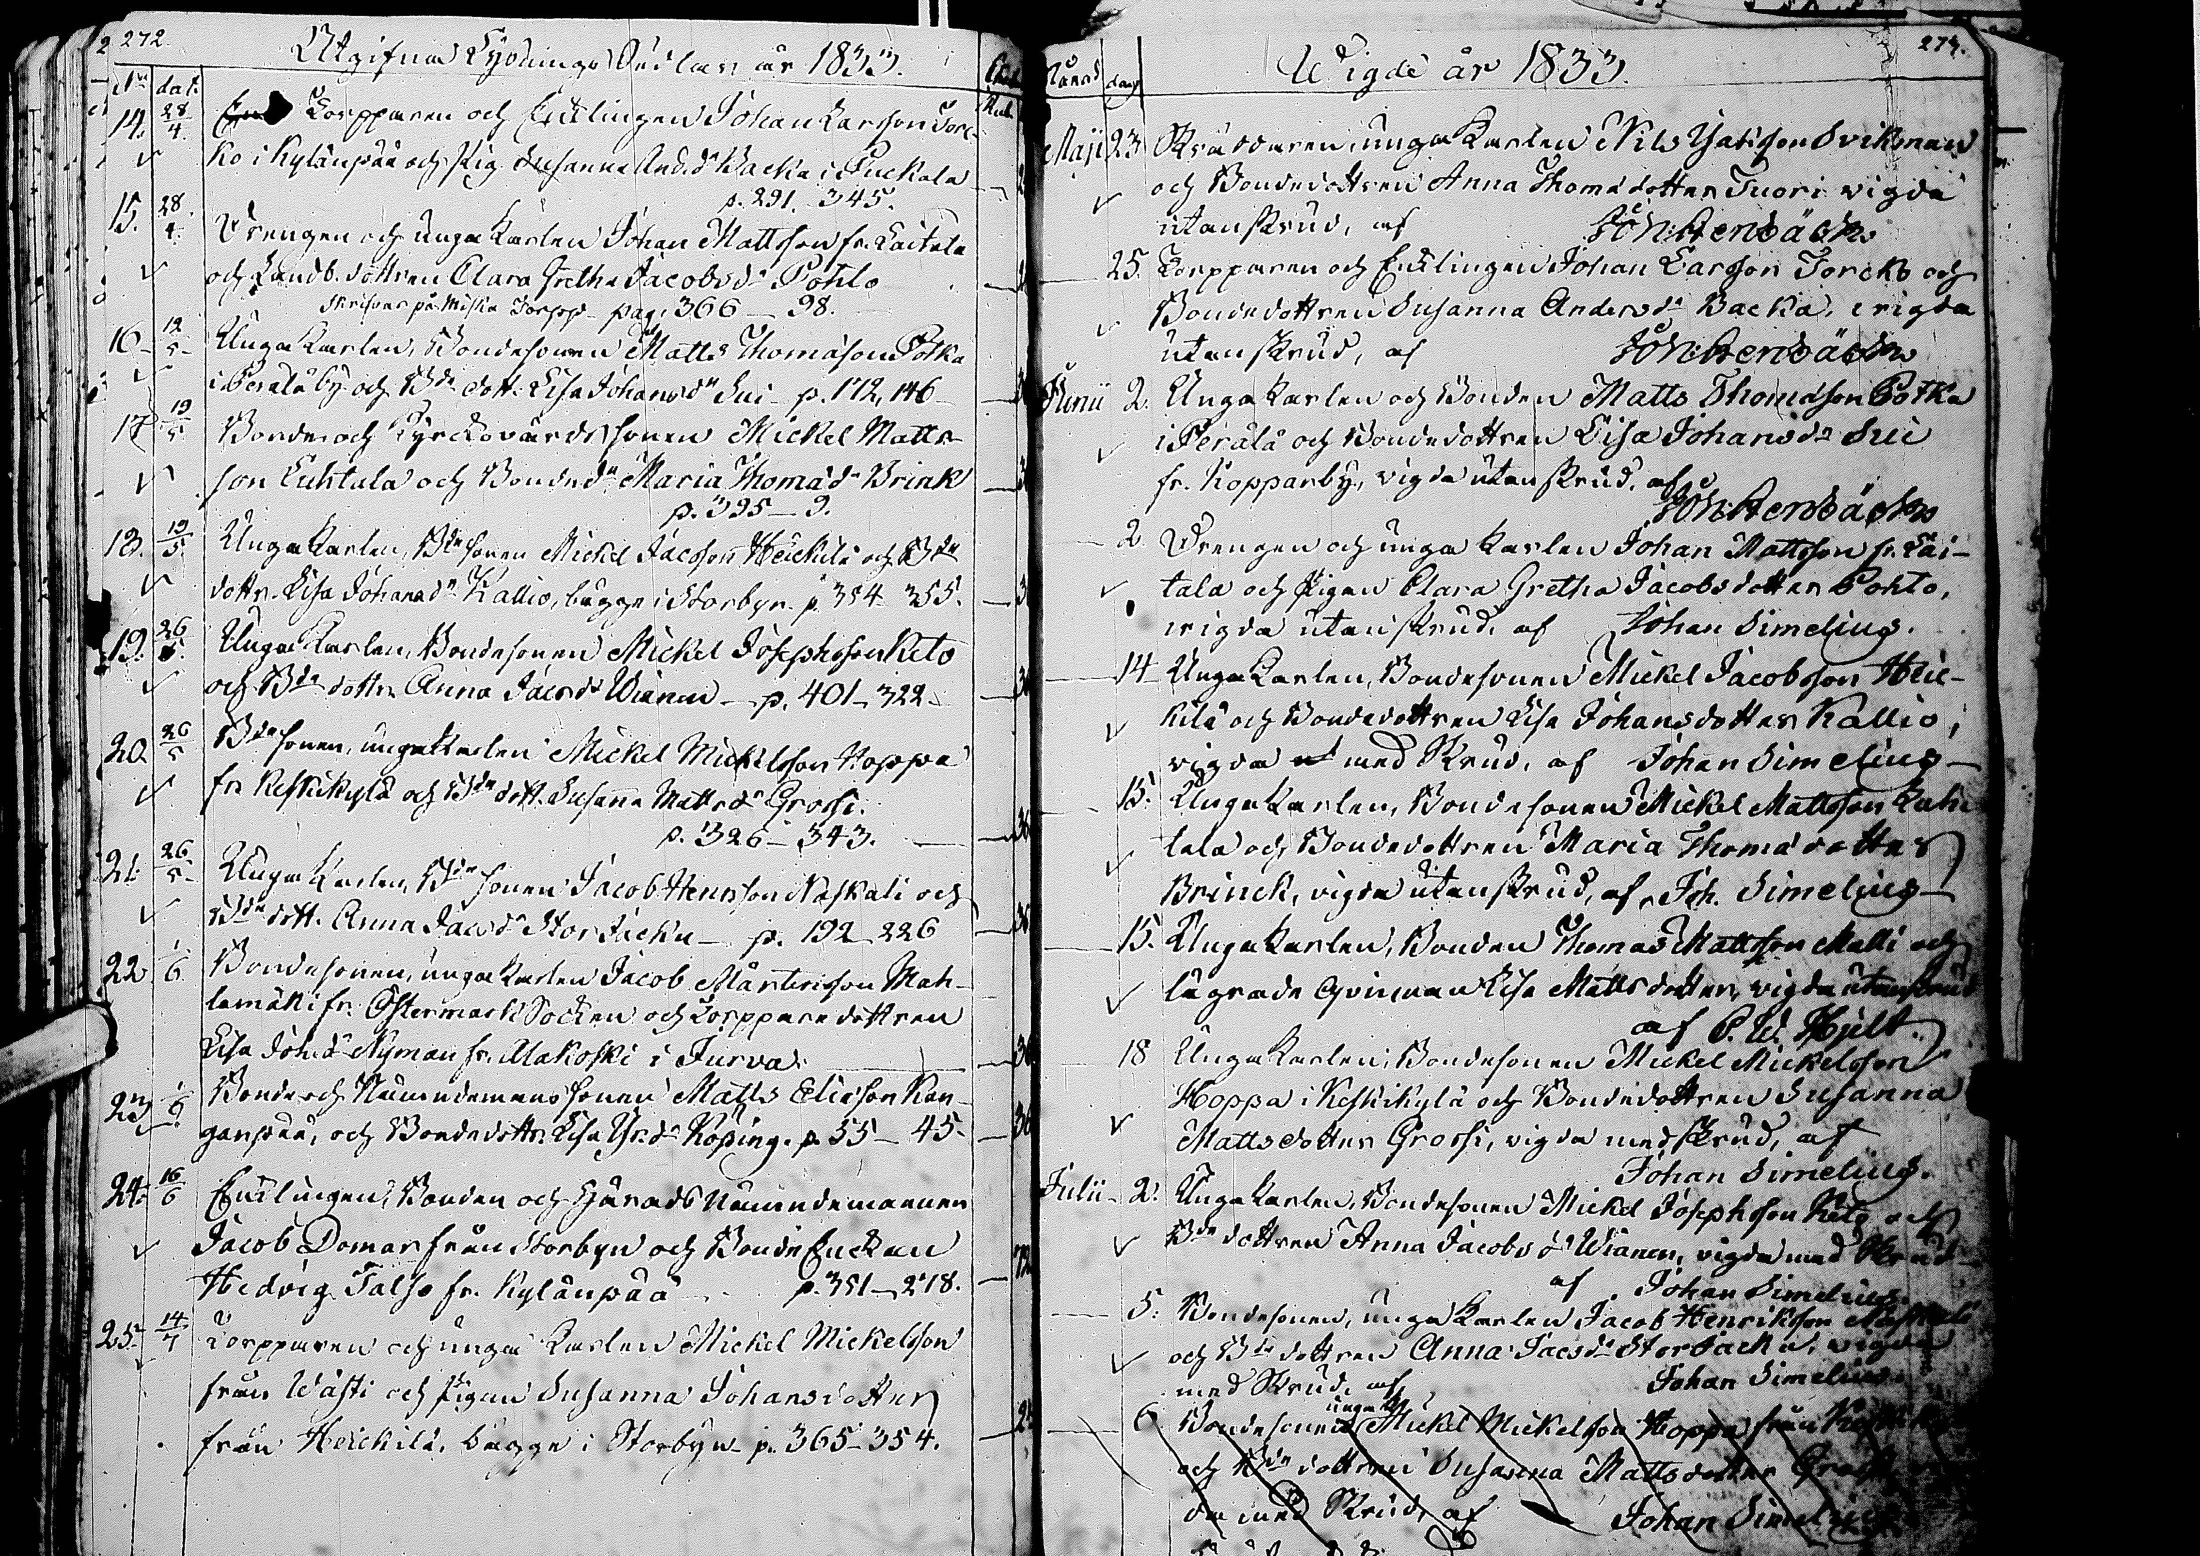 272.
Utgifna Lysnings Sedlar år 1833.
No dat.
14. 28/4. Torpparen och Enklingen Johan Larsson Torc-
ko i Kylänpää och Pig. Susanna And.dr Backa i Puckala
p. 291. 345.
15. 28/4. Drengen och unga Karlen Johan Mattsson fr. Laitala
och Landb. dottren Clara Gretha Jacobsdr Pohto
skrifver på Miska Torpp pag. 366 - 98.
16. 12/5 Unga Karlen, Bondesonen Matts Thomasson Potka
i Perälä by och Bde dott. Lisa Johansdr Sui - p. 172, 146
17. 19/5. Bonde och Kyrckovärds sonen Mickel Matts-
son Luhtala och Bondedr Maria Thomædr Brink
p. 395 - 9.
18. 19/5. Unga Karlen, Bde sonen Mickel Jacsson Heickilä och Bde
dottr. Lisa Johansdr Kallio, bägge i Storbyn. p. 354 355.
19. 26/5. Unga Karlen, Bondesonen Mickel Josephsson Keto
och Bde dottr. Anna Jacsdr Wianen - p. 401 - 322.
20. 26/5 Bde sonen, unga Karlen Mickel Mickelsson Hoppa
fr. Keskikylä och Bde dott. Susanna Mattsdr Grossi.
p. 326 - 343.
21. 26/5. Unga Karlen, Bde sonen Jacob Henrsson Naskali och
Bde dott. Anna Jacsdr Stor Jäckn - p. 192 226
22. 1/6. Bondesonen, unga Karlen Jacob Mårtensson Mah-
lamäki fr. Östermark Socken och Torppare dottren
Lisa Joh.dr Nyman fr. Makoski i Jurva.
23. 1/6. Bonde och Nämndemans sonen Matts Eliasson Kan-
ganpää, och Bonde dottr. Lisa Köping. p. 55 - 45.
24. 16/6 Enklingen, Bonden och Härads Nämndemannen
Jacob Domars från Storbyn och Bonde Enckan
Hedvig Talso fr. Kylänpää p. 351 - 218.
25. 14/7 Torpparen och unga Karlen Mickel Mickelsson
från Wästi och Pigan Susanna Johansdotter
från Heickilä, bägge i Storbyn - p. 365 - 354.
273.
Wigde år 1833.
Månad dag
Maji 23 Skräddaren, unga Karlen Nils Svikman
och Bondedottren Anna Thomædotter Tuori vigda
utan skrud, af
25. Torpparen och Enklingen Johan Larsson Torcko och
Bondedottren Susanna Andersdr Backa, vigda
utan skrud, af
Junii 2. Unga Karlen och Bonden Matts Thomasson Potka
i Perälä och Bondedottren Lisa Johansdr Sui
fr. Kopparby, vigda utan skrud, af
2 Drengen och unga Karlen Johan Mattsson fr. Lai-
tala och Pigan Clara Gretha Jacobsdotter Pohto,
vigda utan skrud, af Johan Simelius.
14 Unga Karlen, Bondesonen Mickel Jacobsson Heic-
kilä och Bondedottren Lisa Johansdotter Kallio,
vigda med Skrud, af Johan Simelius
15. Unga Karlen, Bondesonen Mickel Mattsson Luh-
tala och Bondedottren Maria Thomædotter
Brinck, vigda utan skrud, af Joh. Simelius
15. Unga Karlen, Bonden Thomas Mattsson Malli och
lägrade Qvinnan Lisa Mattsdotter, vigda utan skrud
af P. W. Hjelt.
18 Unga Karlen, Bondesonen Mickel Mickelsson
Hoppa i Keskikylä och Bondedottren Susanna
Mattsdotter Grossi, vigda med skrud, af
Johan Simelius.
Julii 2. Unga Karlen, Bondesonen Mickel Josephsson Keto och
Bde dottren Anna Jacobsdr Wianen, vigda med Skrud
af Johan Simelius
5. Bondesonen, unga Karlen Jacob Henriksson Naskali
och Bde dottren Anna Jacsdr Storjäckn, vigda
med Skrud, af Johan Simelius
unga K.
6 Bondesonen Mickel Mickelsson Hoppa från
och Bde dottren Susanna Mattsdotter Grossi
da med Skrud, af Johan Simelius